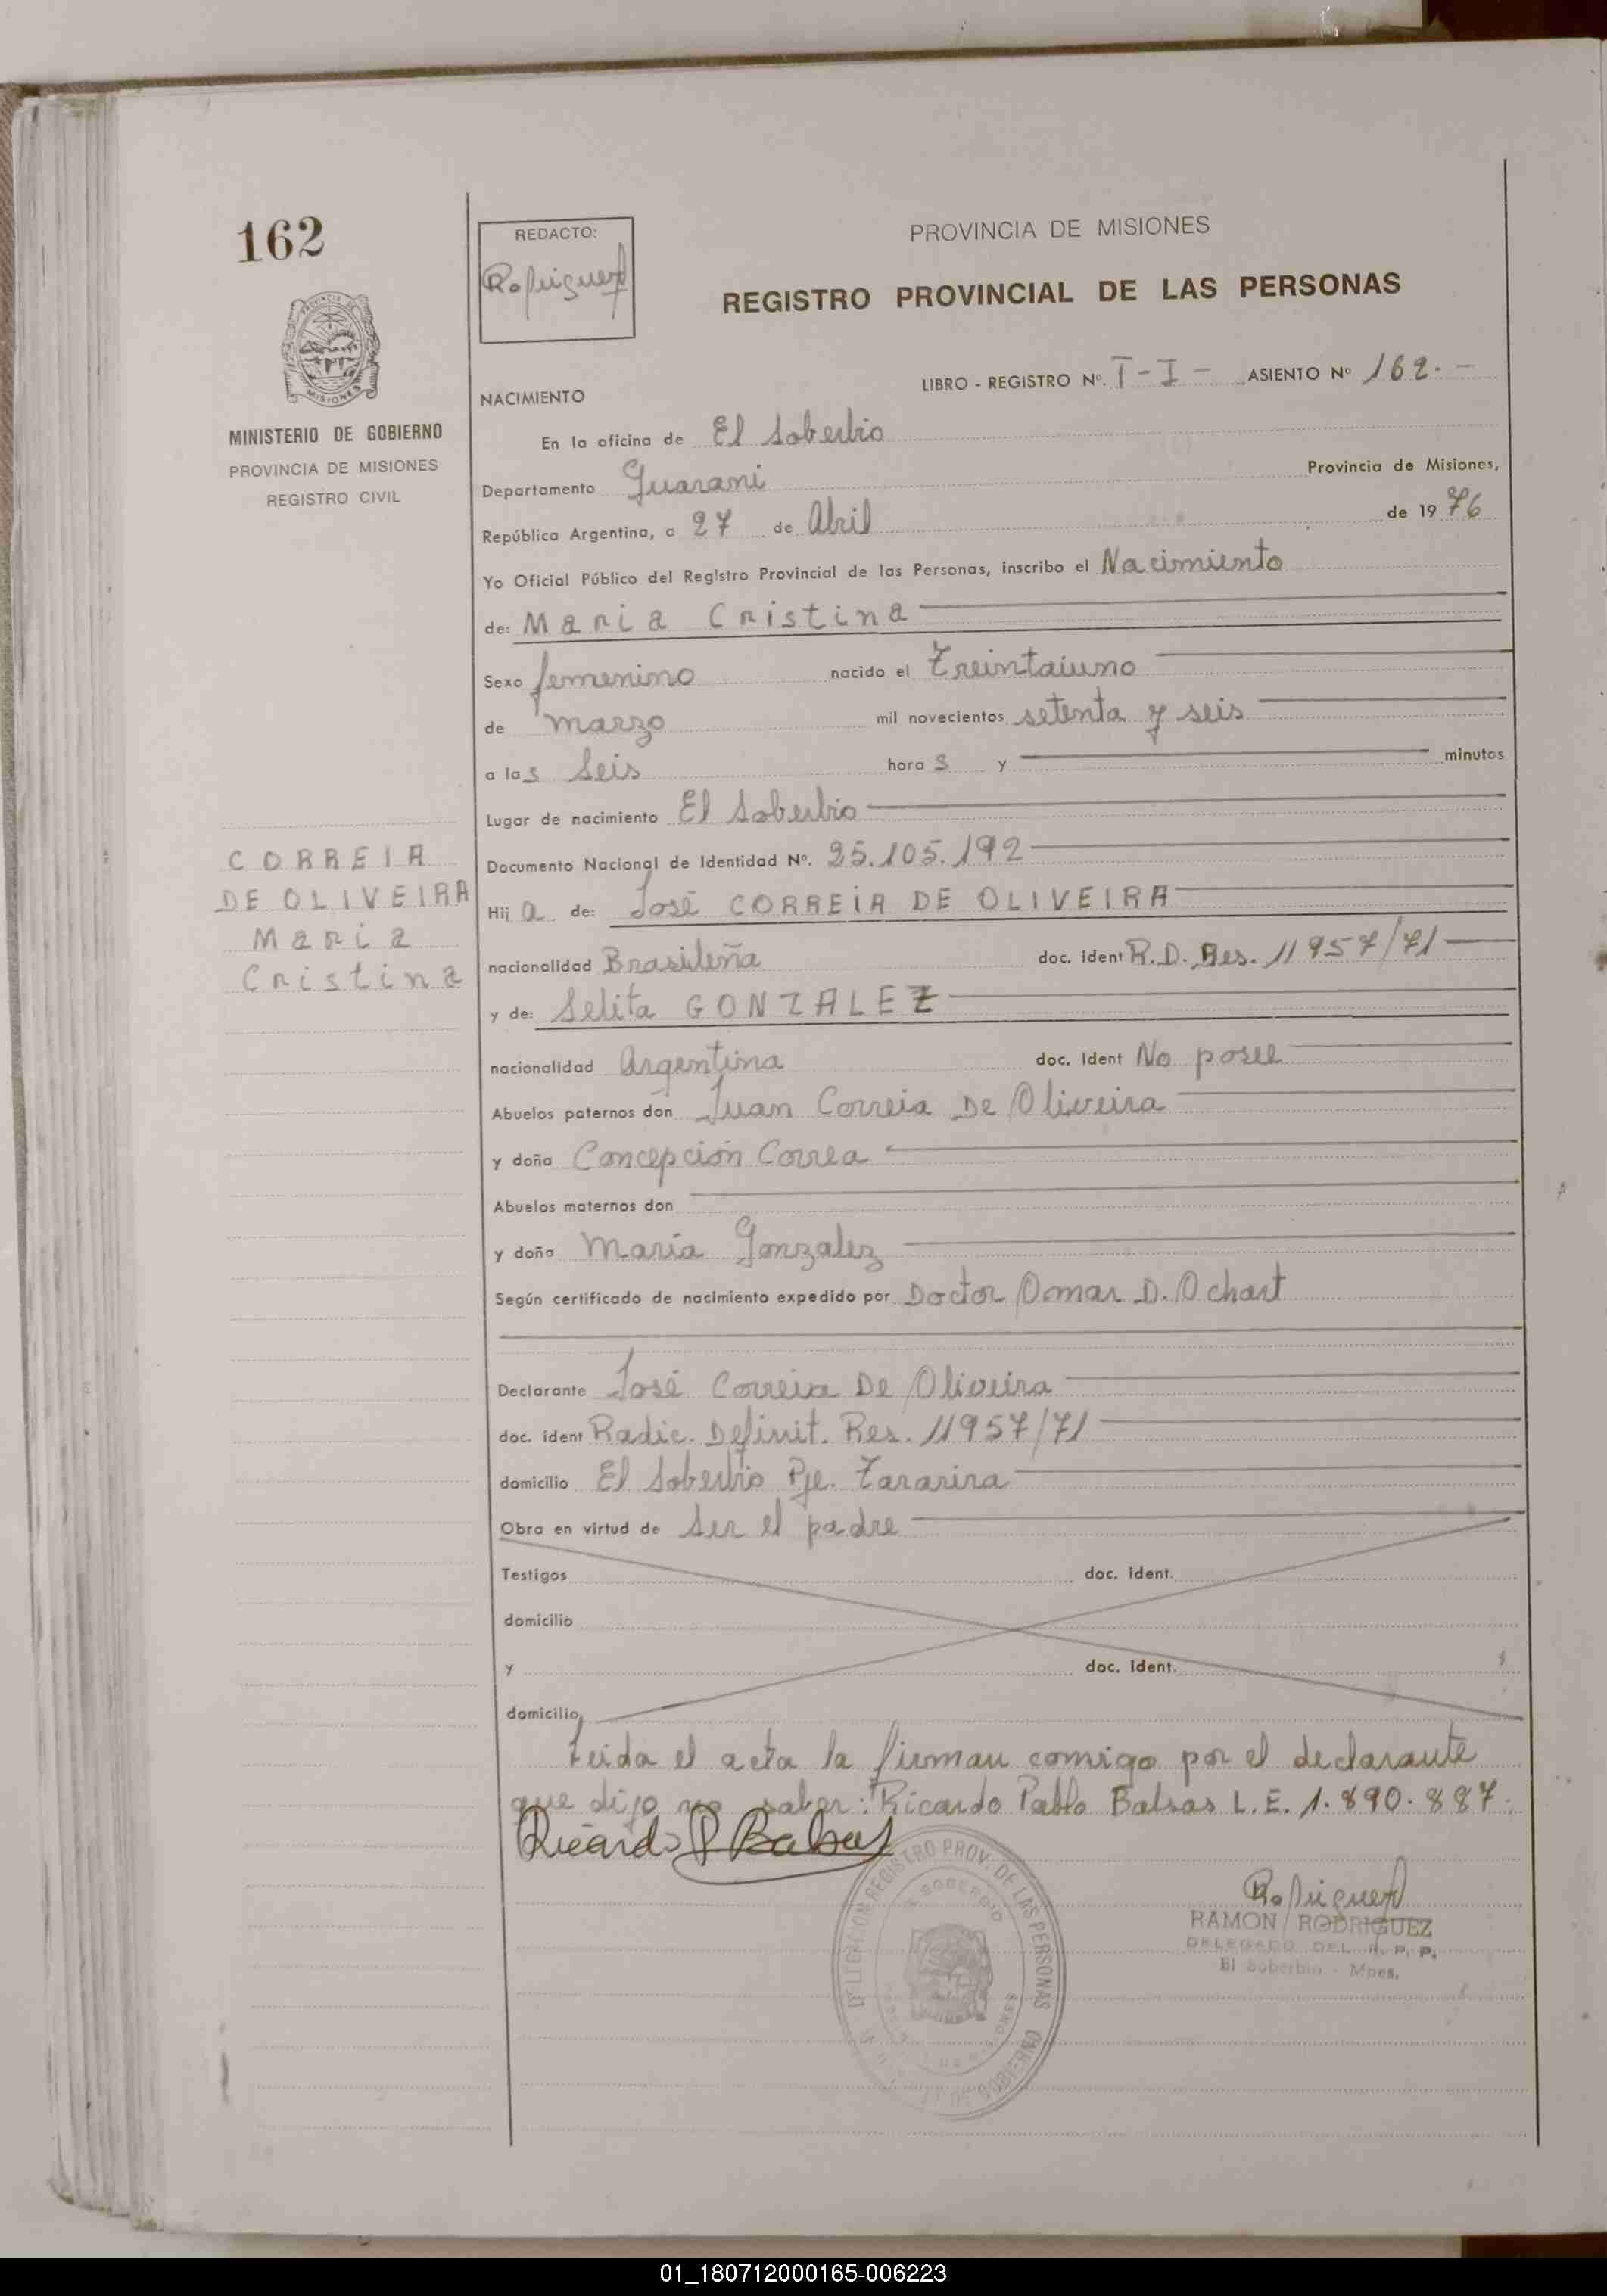 162
REDACTO:
Rodriguez
PROVINCIA DE MISIONES
REGISTRO PROVINCIAL DE LAS PERSONAS
MISIONES
MINISTERIO DE GOBIERNO
PROVINCIA DE MISIONES
REGISTRO CIVIL
LIBRO - REGISTRO Nº. T-I- ASIENTO Nº 162.-
NACIMIENTO
En la oficina de El Soberbio
Departamento Guarani Provincia de Misiones,
República Argentina, a 27 de Abril de 1976
Yo Oficial Público del Registro Provincial de las Personas, inscribo el Nacimiento
de: Maria Cristina
Sexo femenino nacido el Treintaiuno
de marzo mil novecientos setenta y seis
a las Seis horas y minutos
Lugar de nacimiento El Soberbio
CORREIA
DE OLIVEIRA
Maria
Cristina
Documento Nacional de Identidad Nº. 25.105.192
Hija de: José CORREIA DE OLIVEIRA
nacionalidad Brasileña doc. ident R.D. Res. 11957/71
y de: Selita GONZALEZ
nacionalidad Argentina doc. Ident No posee
Abuelos paternos don Juan Correia De Oliveira
y doña Concepción Correa
Abuelos maternos don
y doña María Gonzalez
Según certificado de nacimiento expedido por Doctor Omar D. Ochart
Declarante José Correia De Oliveira
doc. ident Radic. Definit. Res. 11957/71
domicilio El Soberbio Pje. Tararira
Obra en virtud de Ser el padre
Testigos doc. ident.
domicilio
y doc. ident.
domicilio
Leida el acta la firman comigo por el declarante
que dijo no saber: Ricardo Pablo Balsas L.E. 1.890.887.
Ricardo P. Balsas
DELEGACION REGISTRO PROV. DE LAS PERSONAS
SOBERBIO
DE GOBIERNO
Rodriguez
RAMON RODRIGUEZ
DELEGADO DEL R. P. P.
El Soberbio - Mnes.
01_180712000165-006223